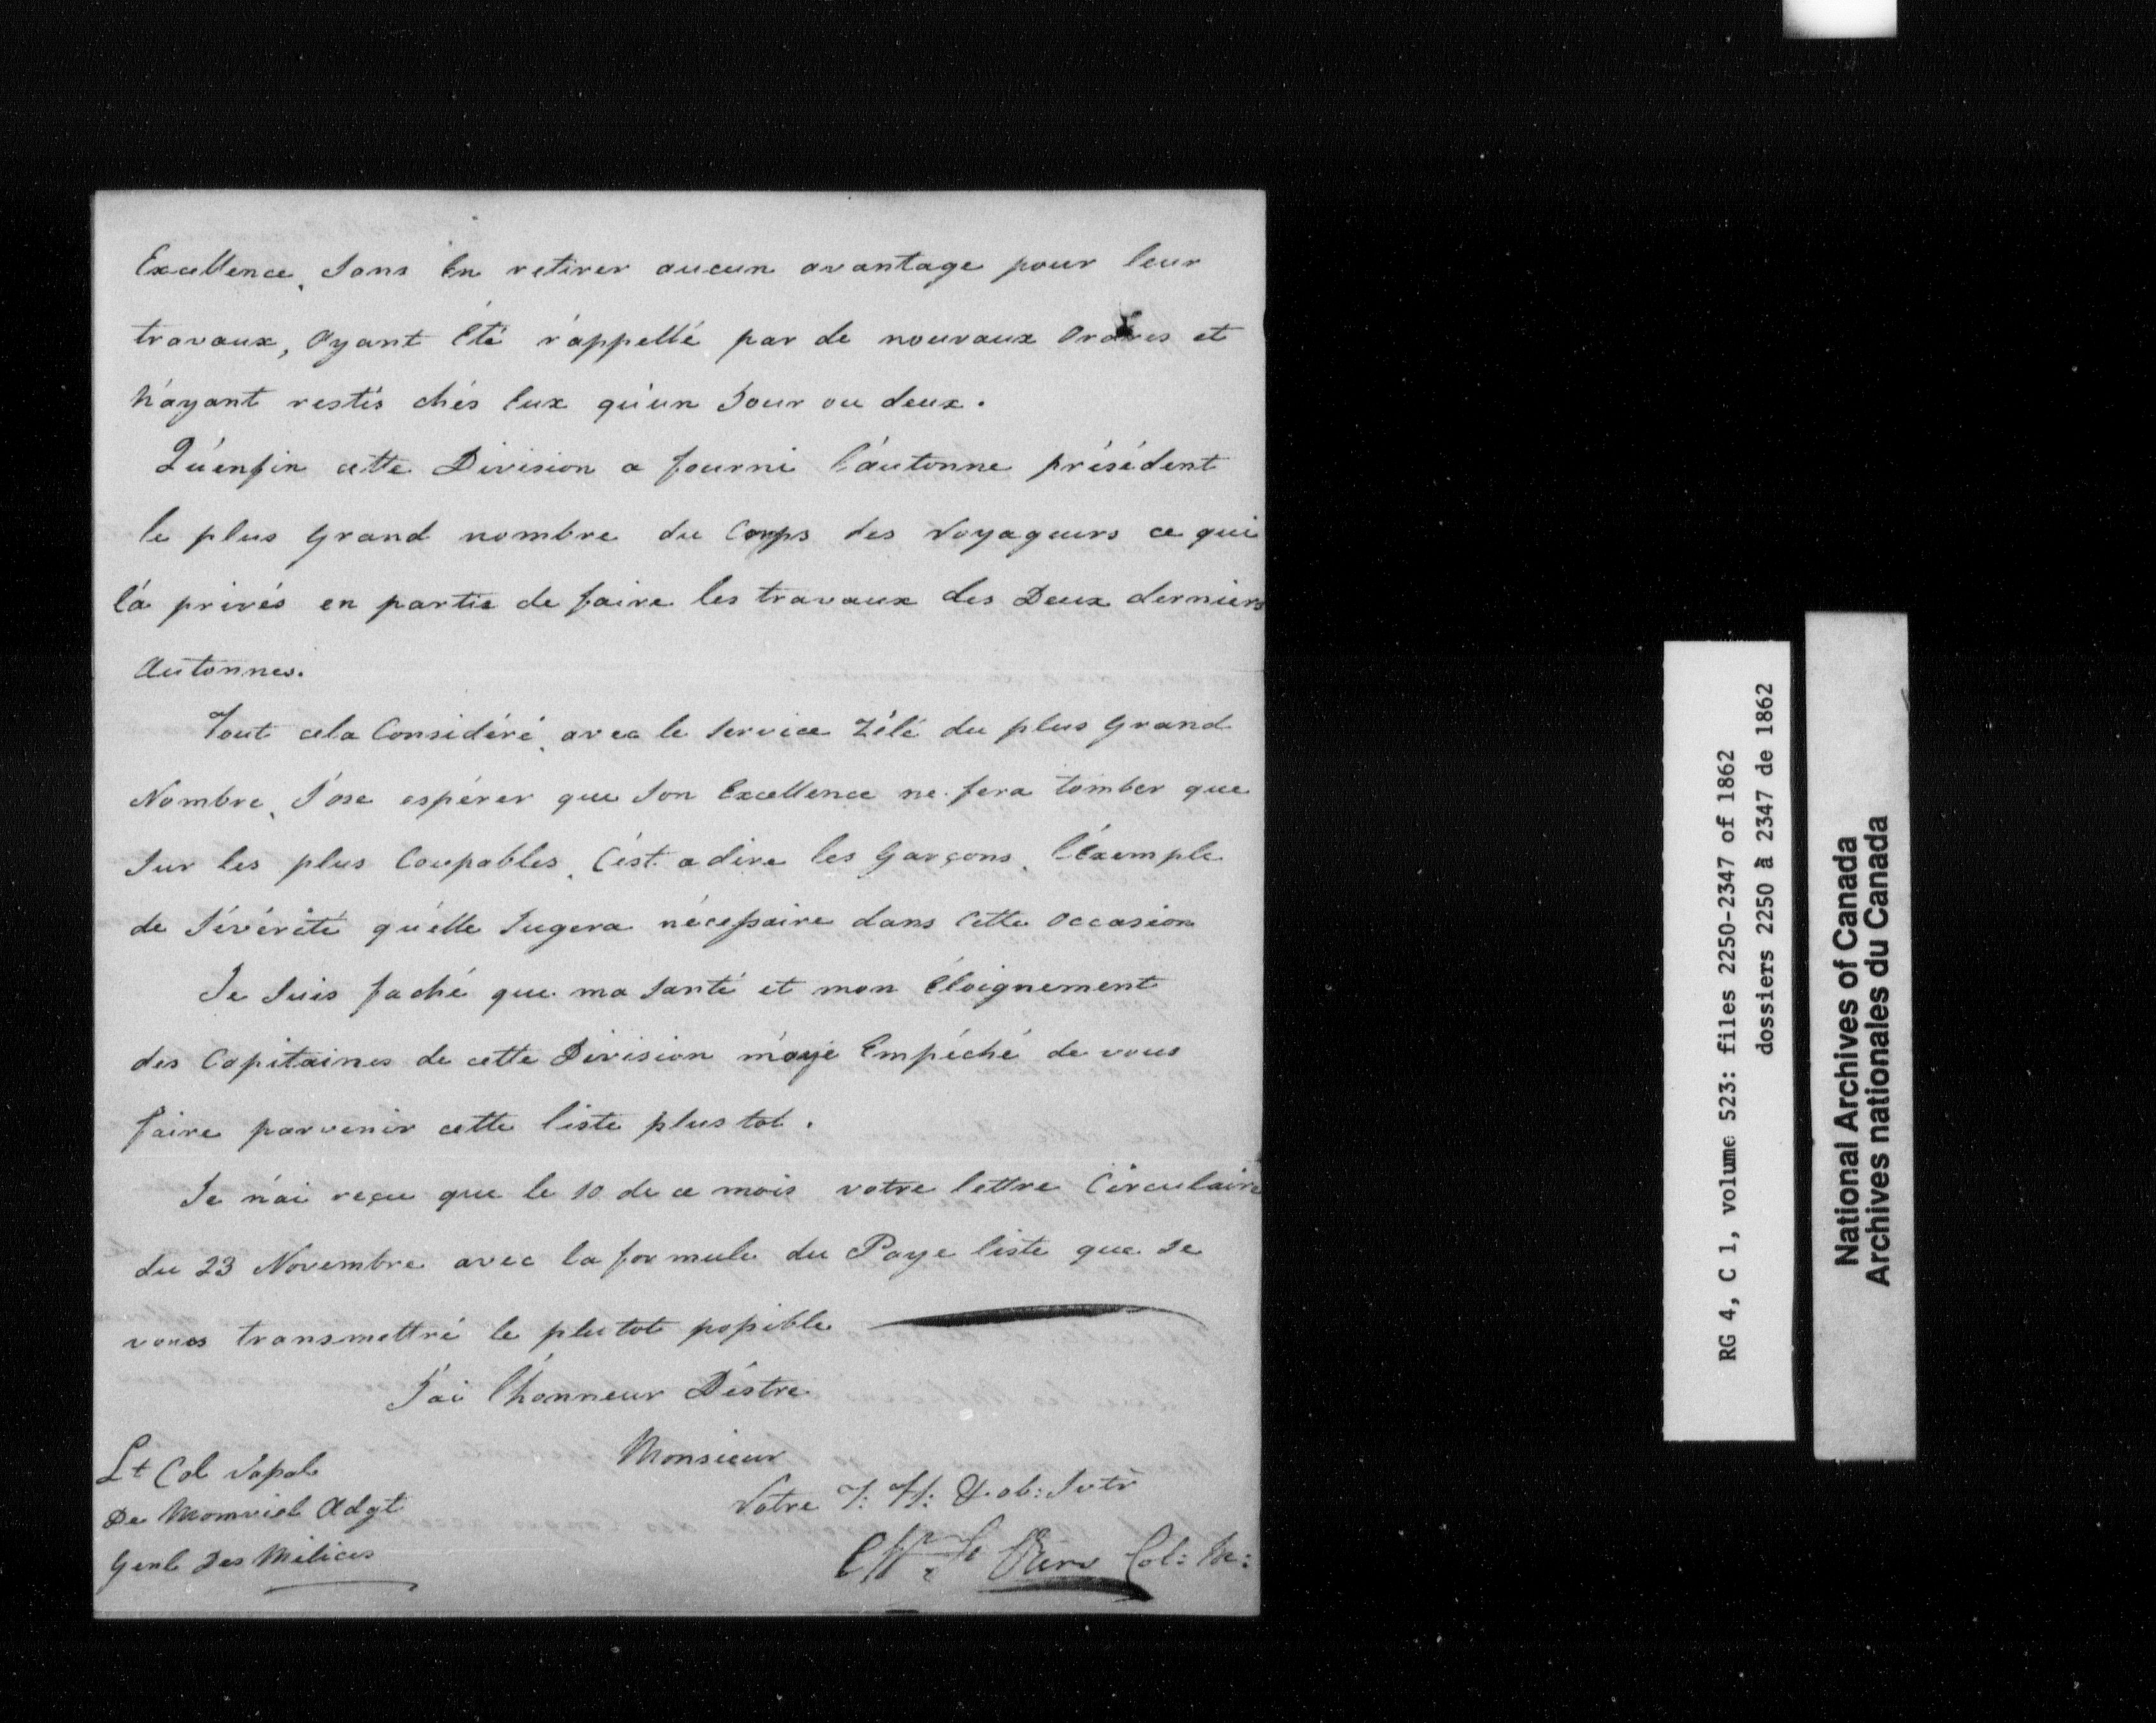 Excellence, Sans En retirer aucun avantage pour leur
travaux, Ayant Eté r'appellé par de nouvaux Ordres et
N'ayant restés chés Eux qu'un Jour ou deux.
Qu'enfin cette Division a fourni l'autonne présédent
le plus Grand nombre du Corps des Voyageurs ce qui
l'a privés en partie de faire les travaux des Deux derniers
Autonnes.
Tout cela Considéré, avec le Service Zélé du plus Grand
Nombre, J'ose espérer que Son Excellence ne fera tomber que
Sur les plus Coupables, C'est a dire les Garçons, l'Exemple
de Sévérité qu'elle Jugera nécessaire dans Cette Occasion
Je Suis faché que ma Santé et mon Éloignement
des Capitaines de cette Division m'aye Empéché de vous
faire parvenir cette liste plus tot.
Je n'ai reçu que le 10 de ce mois votre lettre Circulaire
du 23 Novembre avec la formule du Paye liste que Je
vous transmettré le plutot possible
J'ai l'honneur D'éstre
Monsieur
Votre T: H: & ob: Svtr
Col: M:
Lt Col Vassal
De Monviel Adgt
Genl Des Milices
RG 4, C 1, volume 523: files 2250-2347 of 1862
dossiers 2250 à 2347 de 1862
National Archives of Canada
Archives nationales du Canada